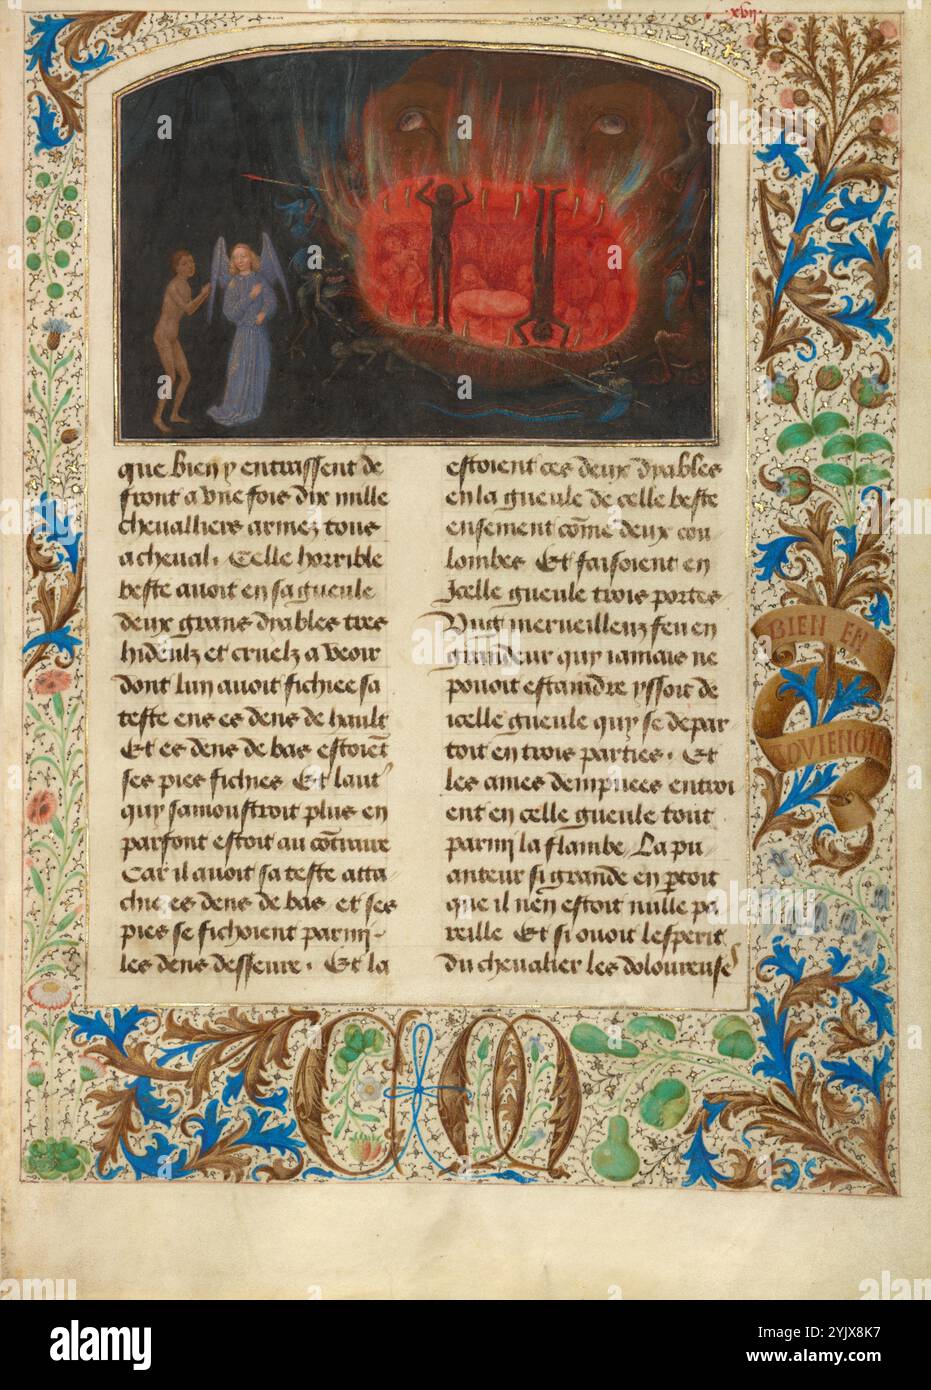 .xvij.
que bien y entrassent de
front a vne fois dix mille
chevalliers armez tous
a cheval. Celle horrible
beste auoit en sa gueule
deux grans dyables tres
hideulz et cruelz a veoir
dont lun auoit fichiee sa
teste ens es dens de hault
Et es dens de bas estoiēt
ses pies fichies Et laut'
quy samoustroit plus en
parfont estoit au cōtraire
Car il auoit sa teste atta
chie es dens de bas et ses
pies se fichoient parmi
les dens desseure. Et la
estoient ces deux dyables
en la gueule de celle beste
ensement cōme deux cou
lombes Et faisoient en
Icelle gueule trois portes
Vng merueilleux feu en
grandeur quy iamais ne
pouoit estaindre yssoit de
icelle gueule quy se depar
toit en trois parties. Et
les ames dempnees entroi
ent en celle gueule tout
parmi la flambe. La pu
anteur si grande en ꝑtoit
que il nen estoit nulle pa
reille Et si ouoit lesperit
du chevalier les doloureuses
BIEN EN
ADVIENGNE
C M
alamy
Image ID: 2YJX8K7
www.alamy.com